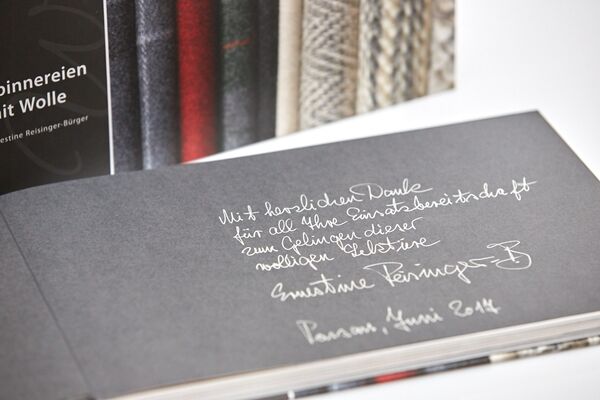 pinnereien
it Wolle
estine Reisinger-Bürger
Mit herzlichen Dank
für all Ihre Einsatzbereitschaft
zum Gelingen dieser
wolligen Lektüre
Ernestine Reisinger-B
Passau, Juni 2017